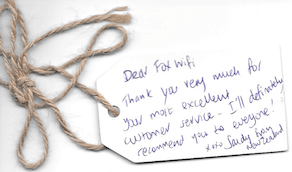 Dear Fox Wifi
Thank you very much for
your most excellent
customer service - I'll definitely
recommend you to everyone!
xxo Sandy from
New Zealand